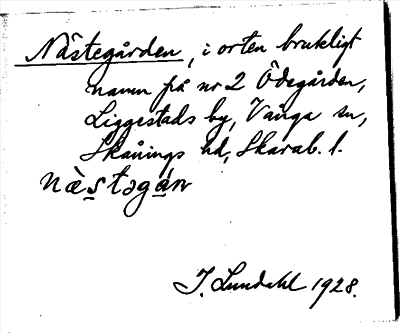 Nästegården, i orten brukligt
namn på nr 2 Ödegården,
Liggestads by, Vånga sn,
Skånings hd, Skarab. l.
nä̀s̠təgá̠n
I. Lundahl 1928.